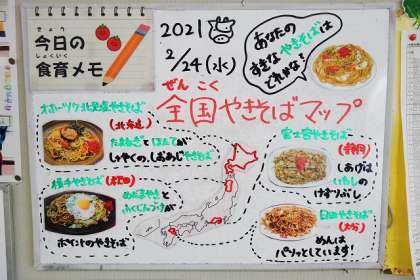 きょう
今日の
しょくいく
食育メモ
2021
2/24(水)
あなたの
すきなやきそばは
どれかな?
ぜんこく
全国やきそばマップ
オホーツク北見塩やきそば
(北海道)
たまねぎとほたてが
しゃくの、しおあじやきそば
横手やきそば(秋田)
めだまやきと
ふくじんづけが
ポイントのやきそば
富士宮やきそば
(静岡)
しあげは
いわしの
けずりぶし
日田やきそば
(大分)
めんは
パリッとしています!